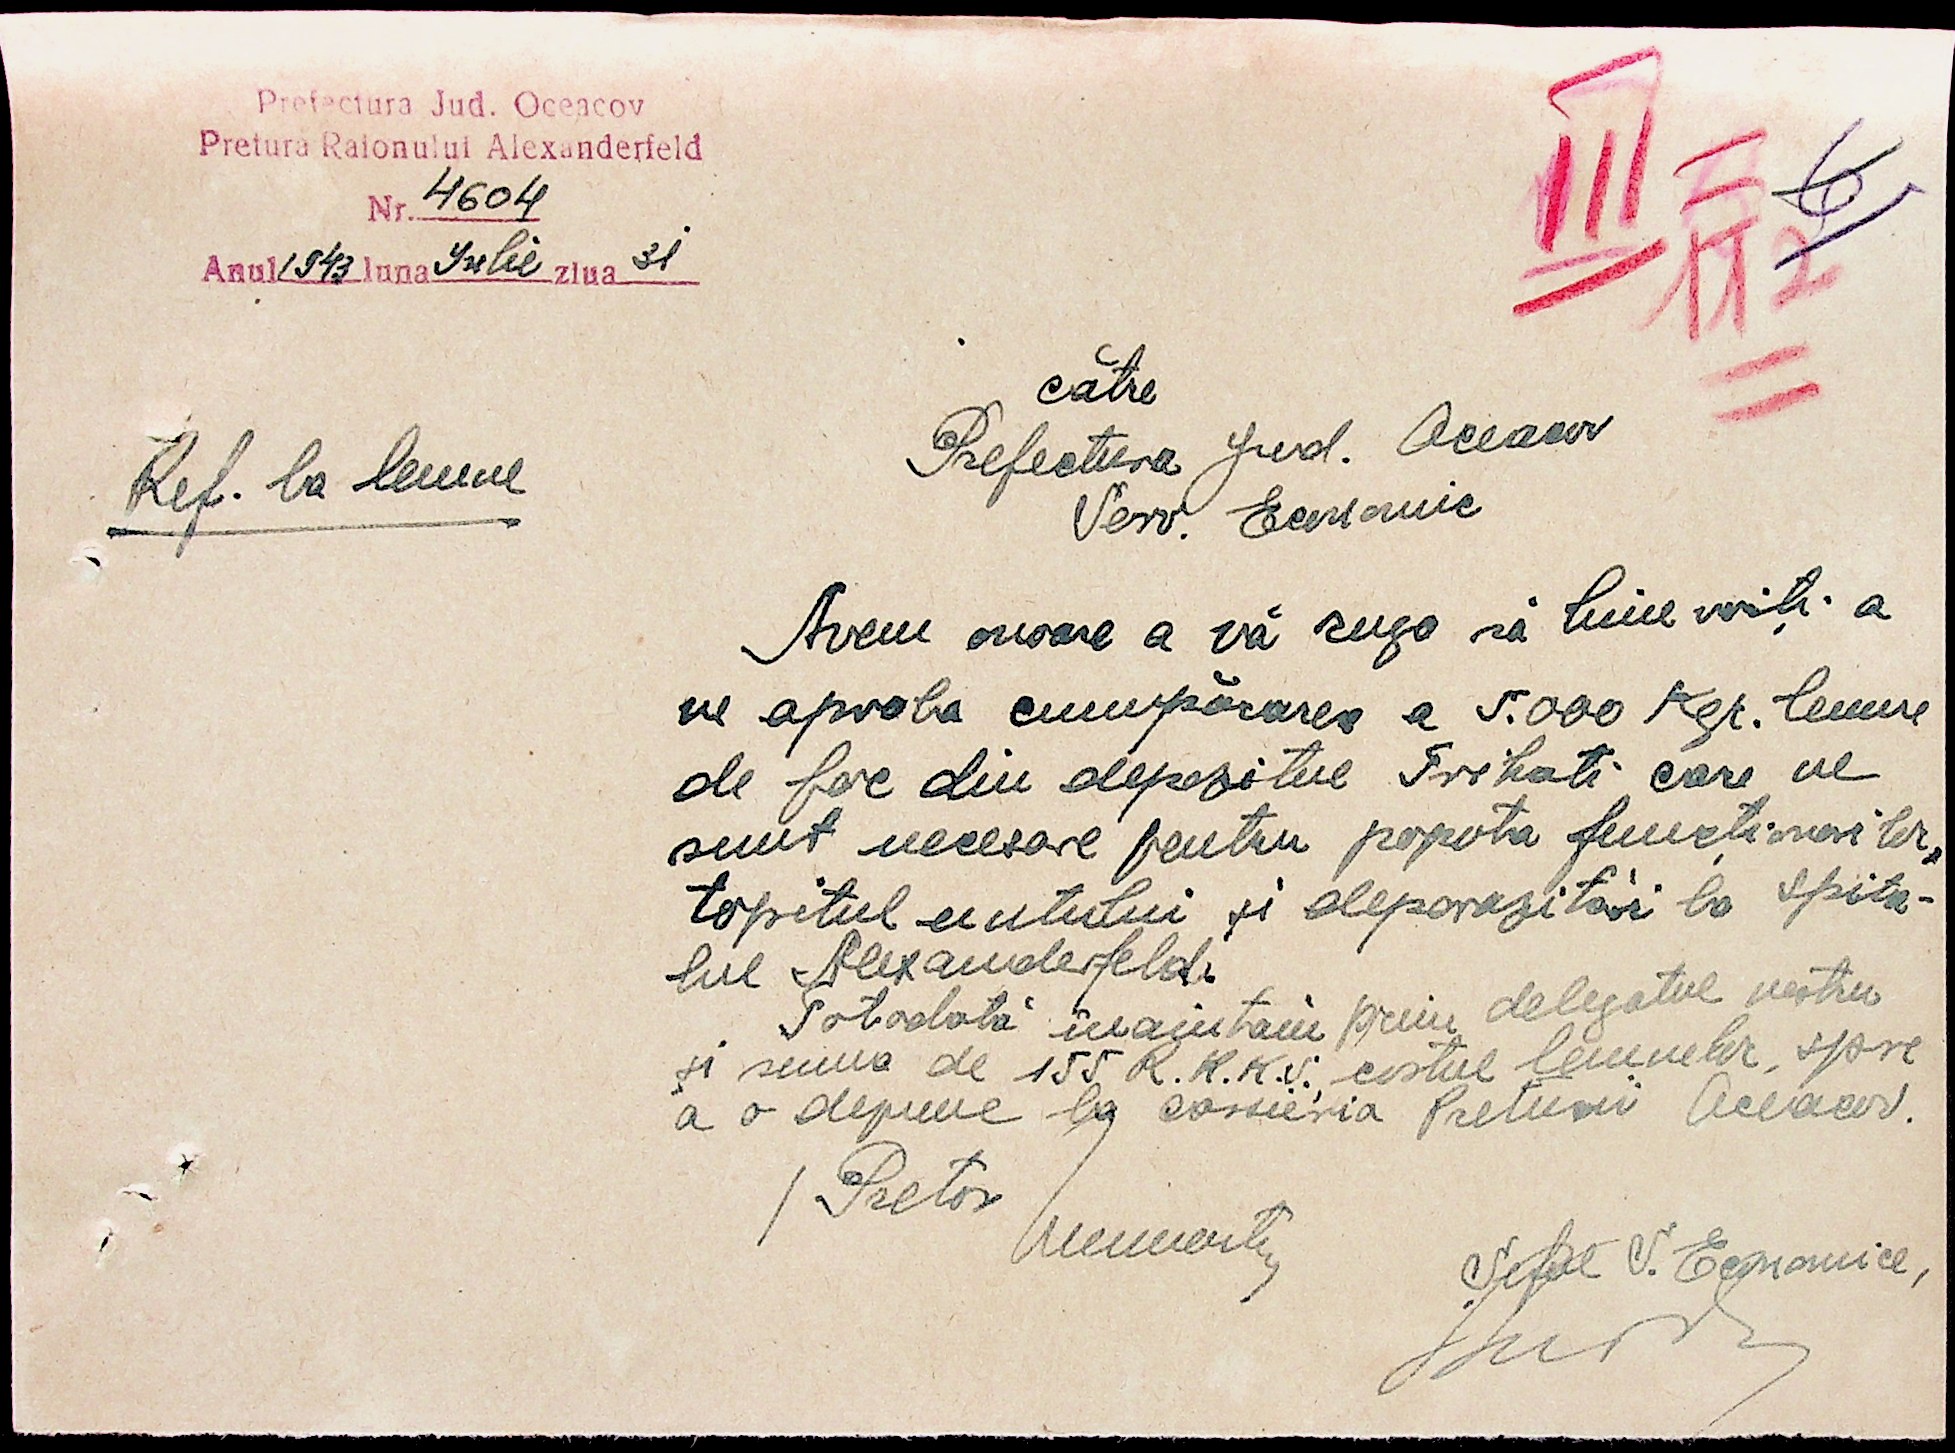 Prefectura Jud. Oceacov
Pretura Raionului Alexanderfeld
Nr. 4604
Anul 1943 luna Iulie ziua 31
III
Ref. la lemne
către
Prefectura Jud. Oceacov
Serv. Economic
Avem onoare a vă ruga să bine voiți a
ne aproba cumpărarea a 5.000 Kgr. lemne
de foc din depozitul Trihati care ne
sunt necesare pentru popota funcționarilor,
topitul untului și deparazitări la Spita-
lul Alexanderfeld.
Totodată înaintăm prin delegatul nostru
și suma de 155 R.K.K.S. costul lemnelor, spre
a o depune la casieria Preturii Oceacov.
/ Pretor
Șeful S. Economice,